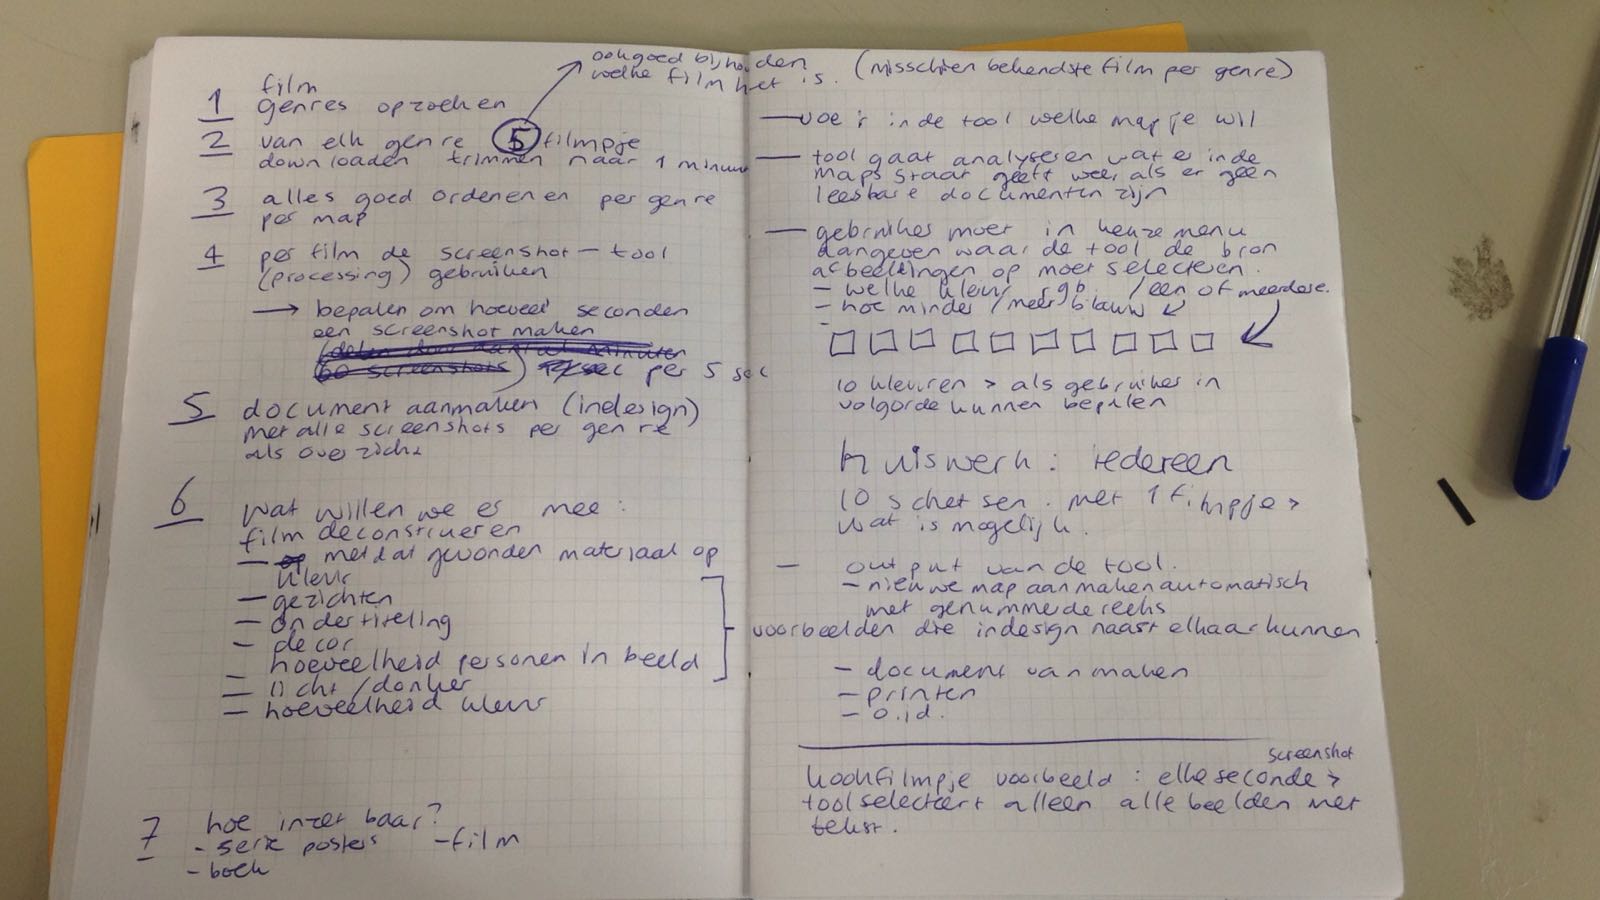 film
1 genres opzoeken
ook goed bijhouden
welke film het is.
2 van elk genre 5 filmpje
downloaden trimmen naar 1 minuut
3 alles goed ordenen en per genre
per map
4 per film de screenshot - tool
(processing) gebruiken
→ bepalen om hoeveel seconden
een screenshot maken
60 screenshots) per 5 sec
5 document aanmaken (indesign)
met alle screenshots per genre
als overzicht
6 wat willen we er mee:
film deconstrueren
- met dat gevonden materiaal op
kleur
- gezichten
- ondertiteling
- decor
hoeveelheid personen in beeld
- licht / donker
- hoeveelheid kleur
7 hoe inzetbaar?
- serie posters - film
- boek
(misschien bekendste film per genre)
- voer in de tool welke map je wil
- tool gaat analyseren wat er in de
map staat geeft weer als er geen
leesbare documenten zijn
- gebruiker moet in keuze menu
aangeven waar de tool de bron
afbeeldingen op moet selecteren.
- welke kleur rgb. / een of meerdere.
- hoe minder / meer blauw
10 kleuren > als gebruiker in
volgorde kunnen bepalen
Huiswerk: iedereen
10 schetsen. met 1 filmpje >
wat is mogelijk.
- output van de tool.
- nieuwe map aanmaken automatisch
met genummerde reeks
voorbeelden die indesign naast elkaar kunnen
- document van maken
- printen
- o.i.d.
screenshot
kookfilmpje voorbeeld: elke seconde >
tool selecteert alleen alle beelden met
tekst.